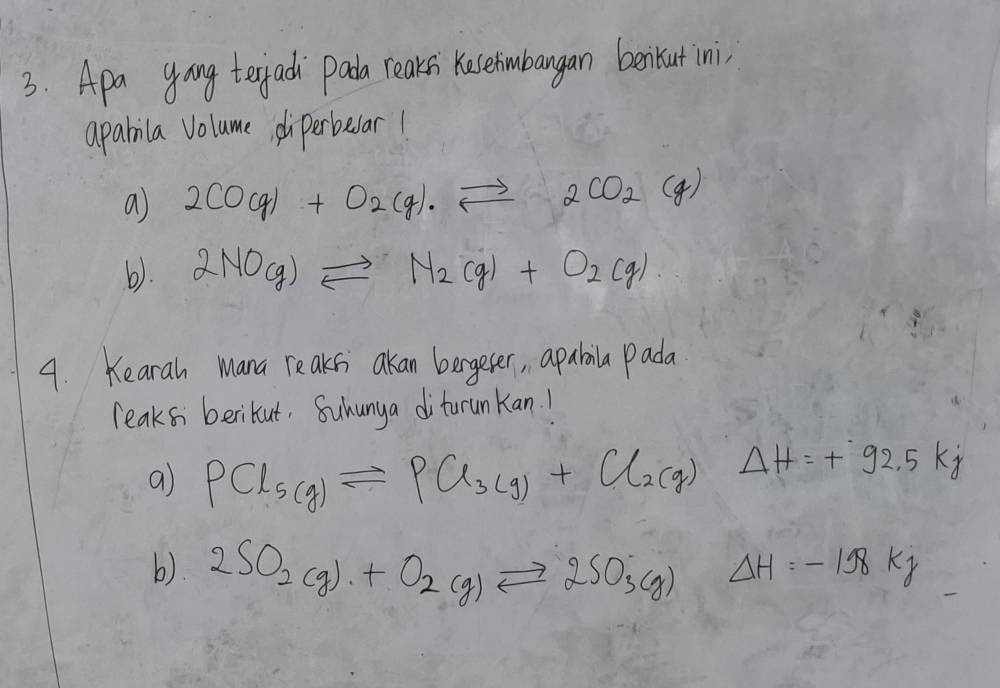 3. Apa yang terjadi pada reaksi kesetimbangan berikut ini,
apabila Volume diperbesar !
a) 2CO(g) + O2(g). ⇌ 2CO2 (g)
b). 2NO(g) ⇌ N2(g) + O2(g)
4. Kearah mana reaksi akan bergeser, apabila pada
reaksi berikut. Suhunya diturunkan.!
a) PCl5(g) ⇌ PCl3(g) + Cl2(g) ΔH = + 92,5 kj
b). 2SO2(g). + O2(g) ⇌ 2SO3(g) ΔH = - 198 kj